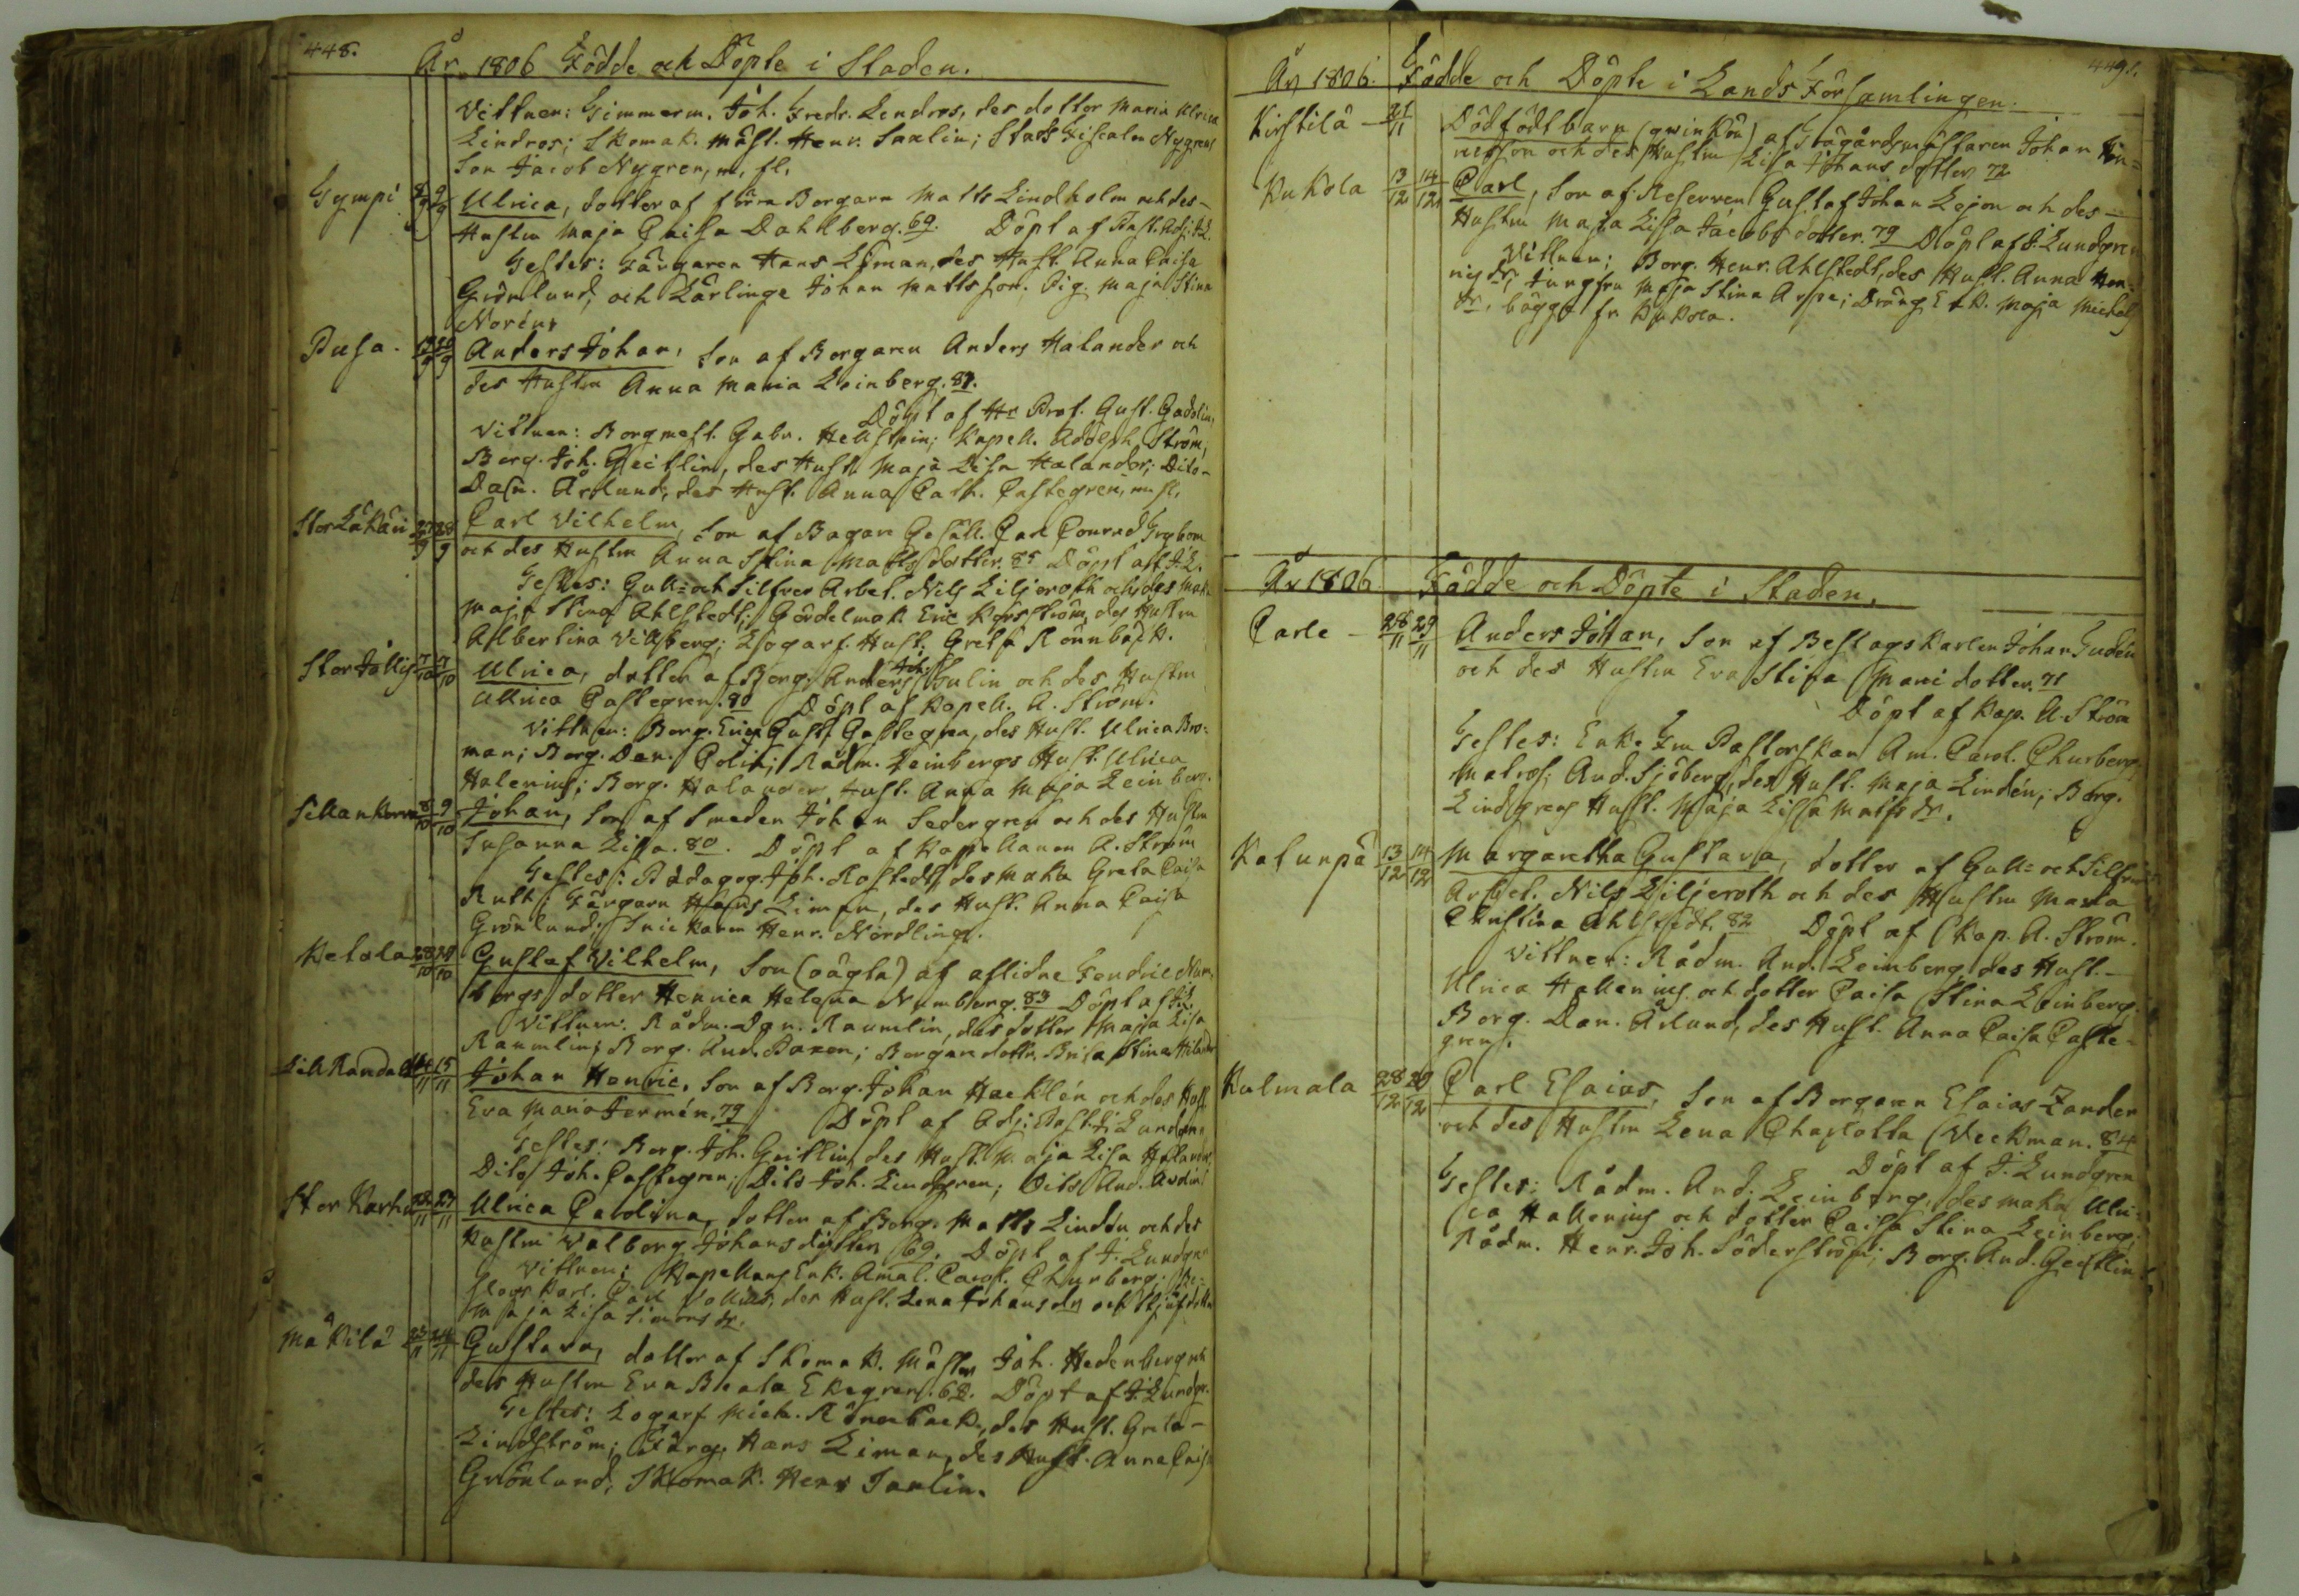 448.
År 1806 Födde och Döpte i Staden.
Vittnen: Timmerm. Joh. Fredr. Lendros, des dotter Maria Ulrica
Lindros; Skomak. Mäst. Henr. Saxlin; Stads Fiscalen Nygrens
Son Jacob Nygren, m. fl.
Gympi 8/9 9/9 Ulrica, dotter af förra Borgaren Matts Lindholm och des
Hustru Maja Caisa Dahlberg. 69. Döpt af Past. Adj. J. L.
Testes: Färgaren Hans Liman, des Hust. Anna Caisa
Grönlund, och Lärlinge Johan Mattsson. Pig. Maja Stina
Norén
Pusa. 19/9 20/9 Anders Johan, Son af Borgaren Anders Halander och
des Hustru Anna Maria Leinberg. 84.
Döpt af Hr Prof. Gust. Gadolin,
Vittnen: Borgmest. Gabr. Hellstein; Kapell. Adolph Ström,
Borg. Joh. Geitlin, des Hust. Maja Lisa Halander; Dito
Dan. Årlund, des Hust. Anna Cath. Castegren, m. fl.
Stor Läkäri 27/9 28/9 Carl Vilhelm, Son af Bagare Gesäll. Carl Conrad Frybom
och des Hustru Anna Stina Mattsdotter. 85 Döpt af J. L.
Testes: Gull- och Silfver Arbet. Nils Liljeroth och des Maka
Maja Stina Ahlstedt; Gördelmak. Eric Korsström, des Hustru
Albertina Villberg; Logarf. Hust. Greta Rönnbäck.
Stor Jällis 7/10 7/10 Ulrica, dotter af Borg. Anders Joh. Thulin och des Hustru
Ulrica Castegren. 80 Döpt af Kapell. A. Ström.
Vittnen: Borg. Eric Gust. Castegren, des Hust. Ulrica Bro-
man; Borg. Dan. Polin; Rådm. Leinbergs Hust. Ulrica
Halenius; Borg. Halanders Hust. Anna Maja Leinberg.
8/10 9/10 Johan, Son af Smeden Johan Sedergren och des Hustru
Susanna Lisa. 80. Döpt af Kapellanen A. Ström
Testes: Pädagog. Joh. Rostedt, des Maka Greta Caisa
Ruth; Färgaren Hans Liman, des Hust. Anna Caisa
Grönlund; Snickaren Henr. Nordling.
Ketola 28/10 29/10 Gustaf Vilhelm, Son (oägta) af aflidne Fendric Num-
bergs dotter Henrica Helena Numberg. 83 Döpt af J. L.
Vittnen: Rådm. Dan. Raumlin, des dotter Maja Lisa
Raumlin; Borg. And. Boxen; Borgaredottr. Brita Stina
14/11 15/11 Johan Henric, Son af Borg. Johan Hacklén och des Hust.
Eva Maria Fermén. 79 Döpt af Adj. Past. J. Lundgren
Testes: Borg. Joh. Geitlin, des Hust. Maja Lisa Halander
Dito Joh. Castegren; Dito Joh. Lindgren; Dito And. Avdin
Stor Karhu 22/11 23/11 Ulrica Carolina, dotter af Borg. Matts Lindén och des
Hustru Valborg Johansdotter 69. Döpt af J. Lundgren
Vittnen: Kapellans Enk. Amal. Carol. Churberg; Be-
slags Karl. Carl Vollius, des Hust. Lena Johansdr och Stjufdotter
Maja Lisa Simonsdr.
Mäkilä 23/11 24/11 Gustava, dotter af Skomak. Mäster Joh. Hedenberg och
des Hustru Eva Beata Ekegren. 62. Döpt af J. Lundgr.
Testes: Logarf. Mich. Rönnback, des Hust. Greta
Lindström; Färg. Hans Liman, des Hust. Anna Caisa
Grönlund, Skomak. Henr Saxlin.
449.
År 1806. Födde och Döpte i Lands Församlingen.
Kirstilä 21/11 Dödfödt barn (qwinkön) af Trägårdsmästaren Johan Hin-
ricsson och des Hustru Lisa Johansdotter 72
Kukola 13/12 14/12 Carl, Son af Reserven Gustaf Johan Lejon och des
Hustru Maja Lisa Jacobsdotter. 79 Döpt af J. Lundgren
Vittnen; Borg. Henr. Ahlstedt, des Hust. Anna Hen-
ricsdr, Jungfru Maja Stina Arpe; Dräng Er. K. Maja Michels
dr, bägge fr. Kukola.
År 1806 Födde och Döpte i Staden.
Carle 28/11 29/11 Anders Johan, Son af Beslagskarlen Johan Gudén
och des Hustru Eva Stina Maridotter. 71
Döpt af Kap. A. Ström
Testes: Enke Fru Pastorskan Am. Carol. Churberg,
Matros. And. Sjöberg, des Hust. Maja Lindén; Borg.
Lindgrens Hust. Maja Lissa Matsdr.
Katunpä 13/12 14/12 Margaretha Gustava, dotter af Gull- och Silfver
Arbet. Nils Liljeroth och des Hustru Maria
Christina Ahlstedt. 82 Döpt af Kap. A. Ström.
Vittnen: Rådm. And. Leinberg, des Hust.
Ulrica Hallenius och dotter Caisa Stina Leinberg;
Borg. Dan. Årlund, des Hust. Anna Caisa Caste-
gren.
Kulmala 28/12 29/12 Carl Esaias, Son af Borgaren Esaias Zander
och des Hustru Lena Charlotta Veckman. 84
Döpt af J. Lundgren
Testes: Rådm. And. Leinberg, des maka Ulri-
ca Hallenius och dotter Caisa Stina Leinberg;
Rådm. Henr. Joh. Söderström; Borg. And. Geitlin